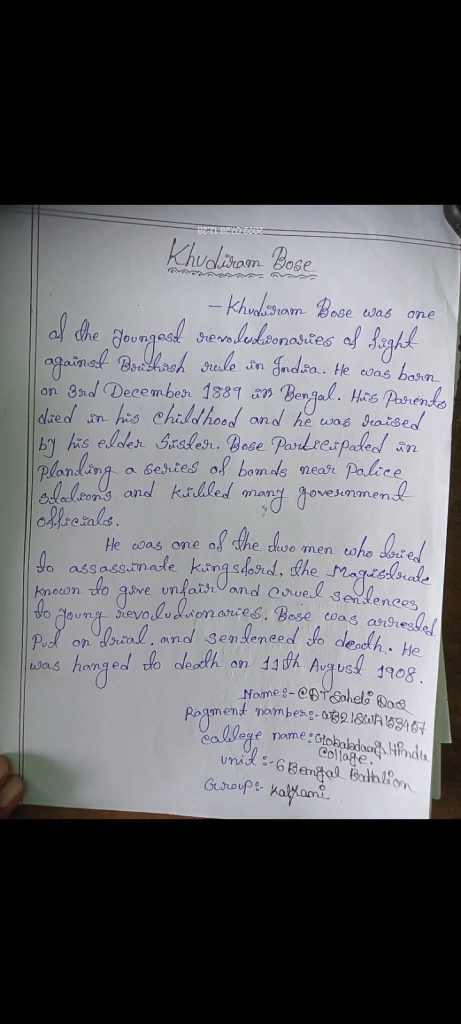 2022 07 28 12:28
Khudiram Bose
- Khudiram Bose was one
of the Joungest revolutionaries of fight
against British rule in India. He was born
on 3rd December 1889 in Bengal. His Parents
died in his childhood and he was raised
by his elder Sister. Bose Participated in
Planting a series of bombs near Police
stations and killed many government
officials.
He was one of the two men who tried
to assassinate Kingsford, the Magistrate
known to give unfair and cruel sentences
to Joung revolutionaries. Bose was arrested
Put on trial, and sentenced to death. He
was hanged to death on 11th August 1908.
Name:- CDT Saheli Das
Ragment nambers:-
callege name:- Hindu
Collage.
unit:- 6 Bengal Battalion
Guroup:- Kalyani